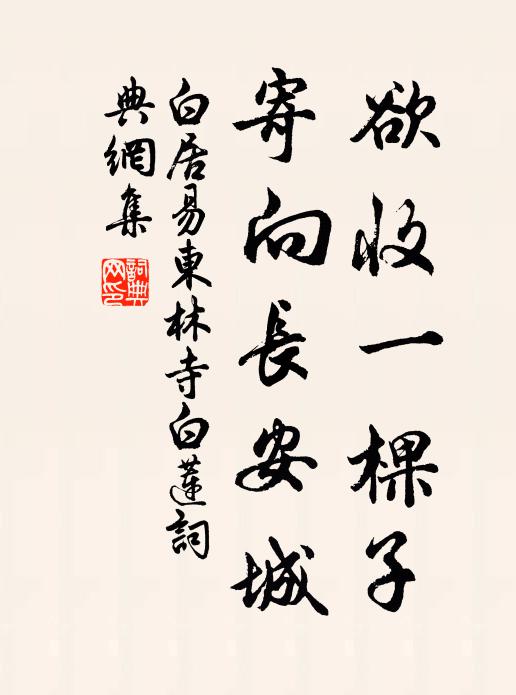 欲收一棵子
寄向長安城
白居易東林寺白蓮詞
典網集
詞典网印